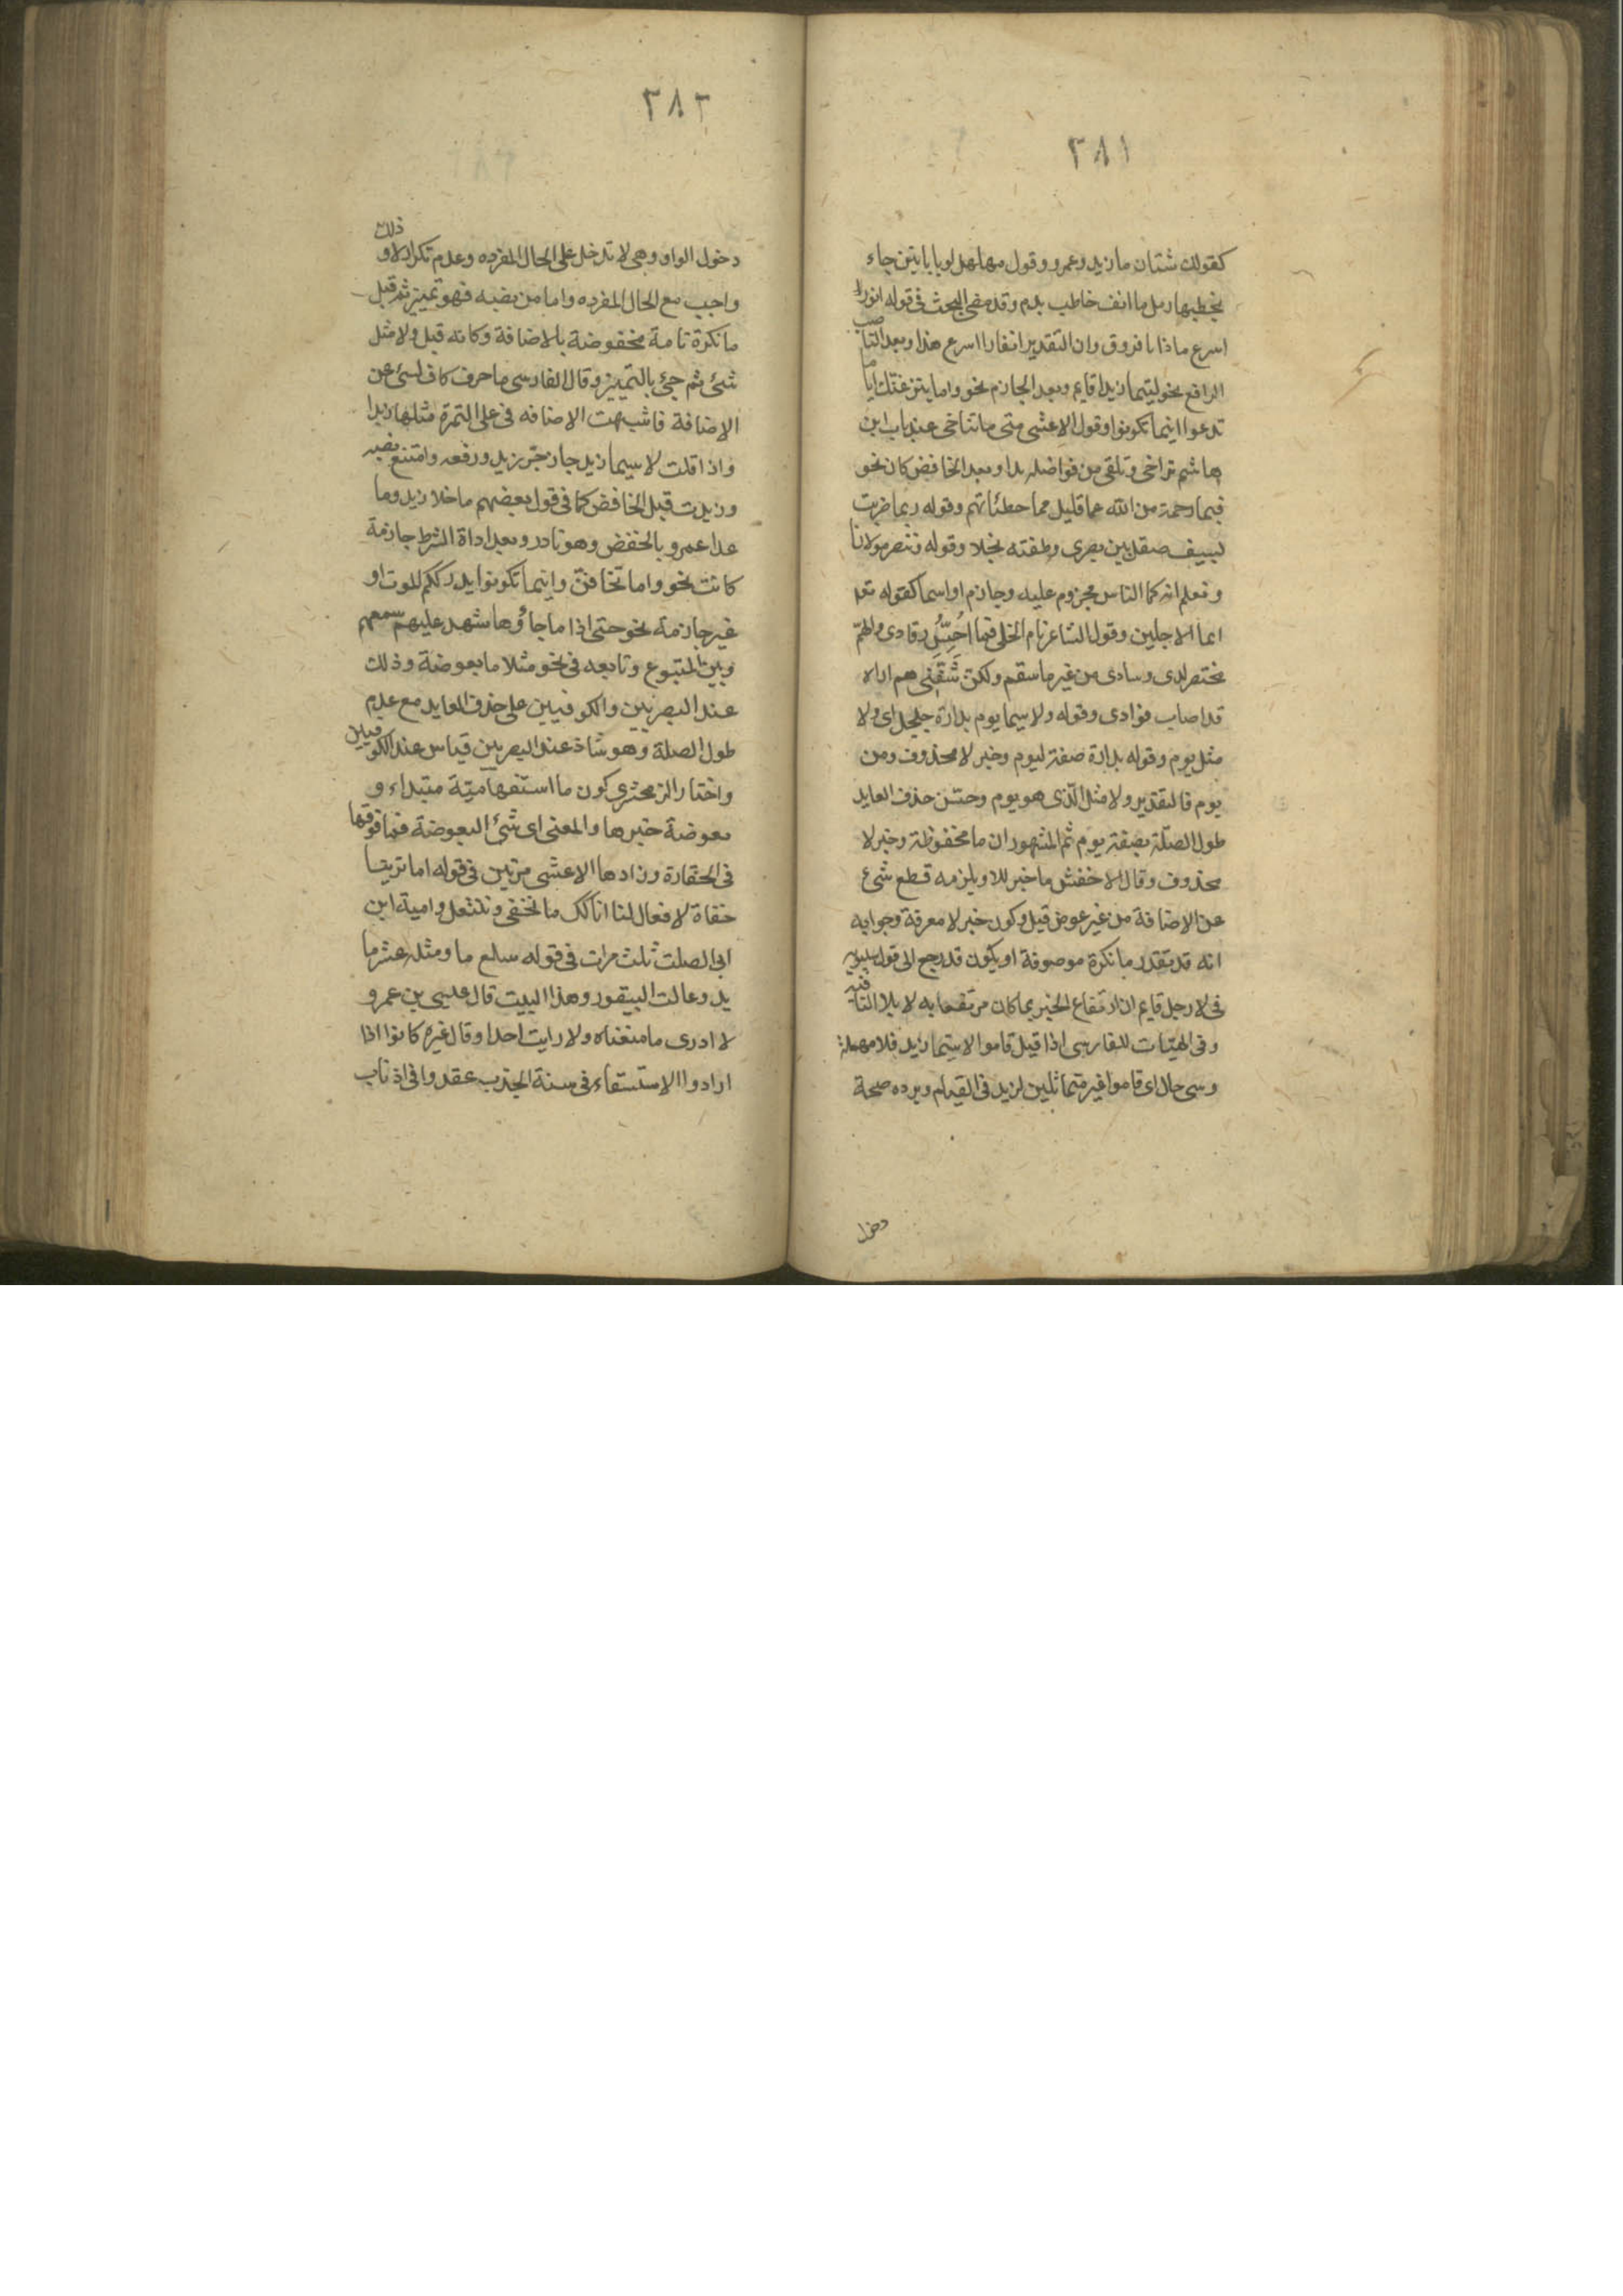 ٢٨١
كقولك شتان ما زيد وعمرو وقول مهلهل لو بابانين جاء
يخطبها رمل ما انف خاطب بدم وقد مضى البحث فى قوله انورا
اسرع ماذا يا فروق وان التقدير انفارا اسرع هذا وبعد الناصب
الرافع نحو ليتما زيدا قايم وبعد الجازم نحو واما ينزغنك اياما
تدعوا اينما تكونوا وقول الاعشى متى ما تناخى عند باب ابن
هاشم تراخى وتلقى من فواضله يدا وبعد الخافض كان نحو
فبما رحمة من الله عما قليل مما خطئاتهم وقوله ربما ضربت
بسيف صقيل بين بصرى وطعنة نجلا وقوله وننصر مولانا
ونعلم انه كما الناس مجزوم عليه وجازم او اسما كقوله تعه
ايما الاجلين وقول الشاعر نام الخلى فما احس رقادى والهم
محتضر لدى وسادى من غير ما سقم ولكن شفنى هم اراه
قد اصاب فؤادى وقوله ولا سيما يوم بدارة جلجل اى ولا
مثل يوم وقوله بدارة صفة ليوم وخبر لا محذوف ومن
يوم فالتقدير ولا مثل الذى هو يوم وحسن حذف العايد
طول الصلة بصفة يوم ثم المشهور ان ما مخفوظة وخبر لا
محذوف وقال الاخفش ما خبر للا ويلزمه قطع شىء
عن الاضافة من غير عوض قيل وكون خبر لا معرفة وجوابه
انه قد تقدر ما نكرة موصوفة او يكون قد رجع الى قول سيبويه
فى لا رجل قايم ان ارتفاع الخبر بما كان مرتفعا به لا بلا النافيه
وفى الهيتات للفارسى اذا قيل قاموا لا سيما زيد فلا مهملة
وسى حال اى قاموا غير متماثلين لزيد فى القيام ويرده صحة
دخول
٢٨٢
دخول الواو وهى لا تدخل على الحال المفرده وعدم تكرار لا وذلك
واجب مع الحال المفرده واما من نصبه فهو تميز ثم قيل
ما نكرة تامة مخفوضة بالاضافة وكانه قيل ولا مثل
شئ ثم جئ بالتمييز وقال الفارسى ما حرف كاف لسئ عن
الاضافة فاشبهت الاضافه فى على التمرة مثلها زبدا
واذا قلت لا سيما زيد جاز جر زيد ورفعه وامتنع نصبه
وزيدت قبل الخافض كما فى قول بعضهم ما خلا زيد وما
عدا عمرو بالخفض وهو نادر وبعد اداة الشرط جازمة
كانت نحو واما تخافنّ واينما تكونوا يدرككم الموت او
غير جازمة نحو حتى اذا ما جاؤها شهد عليهم سمعهم
وبين المتبوع وتابعه فى نحو مثلا ما بعوضة وذلك
عند البصريين والكوفيين على حذف العايد مع عدم
طول الصلة وهو شاذ عند البصريين قياس عند الكوفيين
واختار الزمحشرى كون ما استفهامية مبتداء و
بعوضة خبرها والمعنى اى شئ البعوضة فما فوقها
فى الحقارة وزادها الاعشى مرتين فى قوله اما ترينا
حفاة لا فعال لنا انا كك ما نحفى وننتعل وامية ابن
ابى الصلت ثلث مرات فى قوله سلع ما ومثله عشر ما
يد وعالت البيقور وهذا البيت قال عيسى بن عمرو
لا ادرى ما معناه ولا رايت احدا وقال غيره كانوا اذا
ارادوا الاستسقاء فى سنة الجدب عقدوا فى اذناب